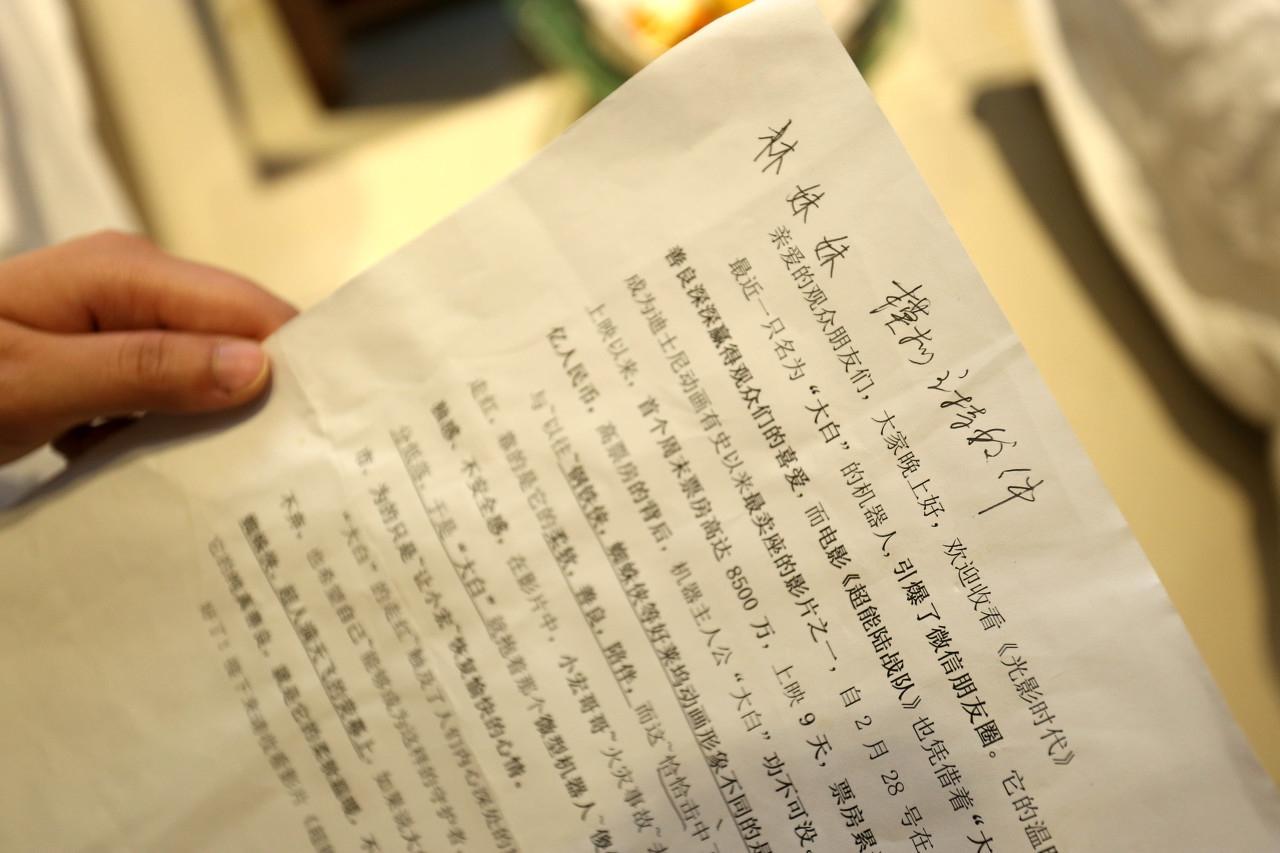 林妹妹 模拟主持稿件
亲爱的观众朋友们，大家晚上好，欢迎收看《光影时代》
最近一只名为“大白”的机器人，引爆了微信朋友圈。它的温
善良深深赢得观众们的喜爱，而电影《超能陆战队》也凭借着“大
成为迪士尼动画有史以来最卖座的影片之一，自 2 月 28 号在
上映以来，首个周末票房高达 8500 万，上映 9 天，票房累
亿人民币。高票房的背后，机器主人公“大白”功不可没。
与~以往~钢铁侠，蜘蛛侠等好莱坞动画形象不同的是
走红，靠的是它的柔软，善良，陪伴，而这~恰恰击中
独感，不安全感，在影片中，小宏哥哥~火灾事故~
分低落，于是“大白”就抱着那个微型机器人~
市，为的只是~让小宏~恢复愉快的心情。
“大白”的走红~触及了人们内心深处的
不弃，也希望自己~能够成为这样的守护者，
蜘蛛侠，超人满天飞的荧幕上，如果说大
它的纯真善良，就是它的柔软